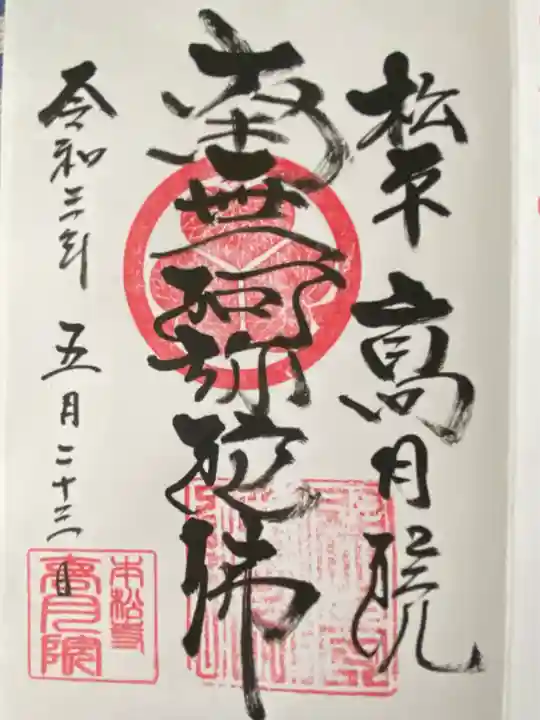 松平 高月院
南無阿弥陀佛
令和三年 五月二十三日
本松寺
高月院